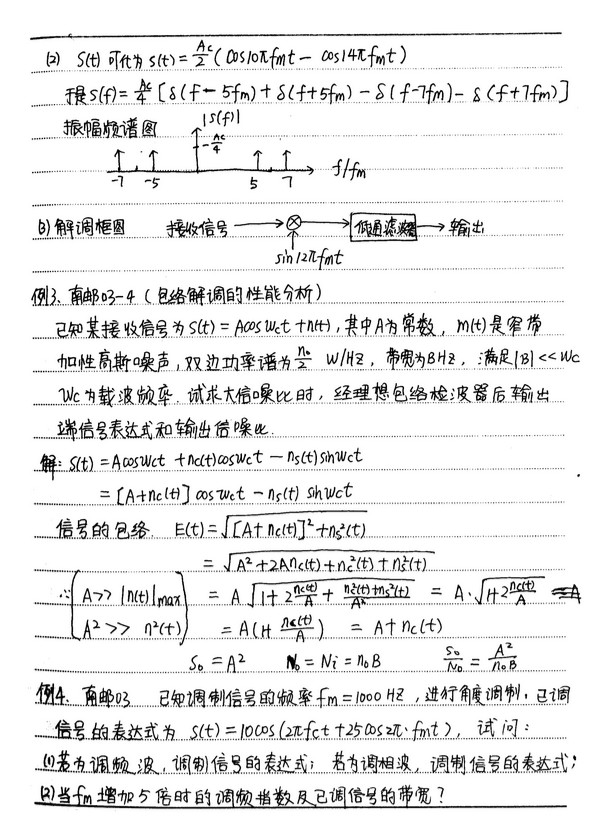 (2) S(t) 可化为 s(t) = Ac/2 (cos10πfmt - cos14πfmt)
于是 S(f) = Ac/4 [δ(f-5fm) + δ(f+5fm) - δ(f-7fm) - δ(f+7fm)]
振幅频谱图 |S(f)|
Ac/4
-7 -5 5 7 f/fm
(3) 解调框图 接收信号 ⊗ 低通滤波器 输出
sin12πfmt
例3、南邮03-4 (包络解调的性能分析)
已知某接收信号为 S(t) = Acos wct + n(t), 其中A为常数, n(t)是窄带
加性高斯噪声, 双边功率谱为 n₀/2 W/HZ, 带宽为BHZ, 满足|B| << Wc
Wc为载波频率. 试求大信噪比时, 经理想包络检波器后输出
端信号表达式和输出信噪比.
解: S(t) = Acoswct + nc(t)coswct - ns(t)sinwct
= [A+nc(t)] coswct - ns(t) sinwct
信号的包络 E(t) = √([A+nc(t)]² + ns²(t))
= √(A² + 2Anc(t) + nc²(t) + ns²(t))
∵ A >> |n(t)|max = A √(1 + 2nc(t)/A + (nc²(t)+ns²(t))/A²) = A·√(1+2nc(t)/A)
A² >> n²(t) = A(1+ nc(t)/A) = A + nc(t)
So = A² No = Ni = n₀B So/No = A²/n₀B
例4. 南邮03 已知调制信号的频率 fm = 1000HZ, 进行角度调制, 已调
信号的表达式为 S(t) = 10cos(2πfct + 25cos2π·fmt), 试问:
(1) 若为调频波, 调制信号的表达式; 若为调相波, 调制信号的表达式;
(2) 当fm增加5倍时的调频指数及已调信号的带宽?